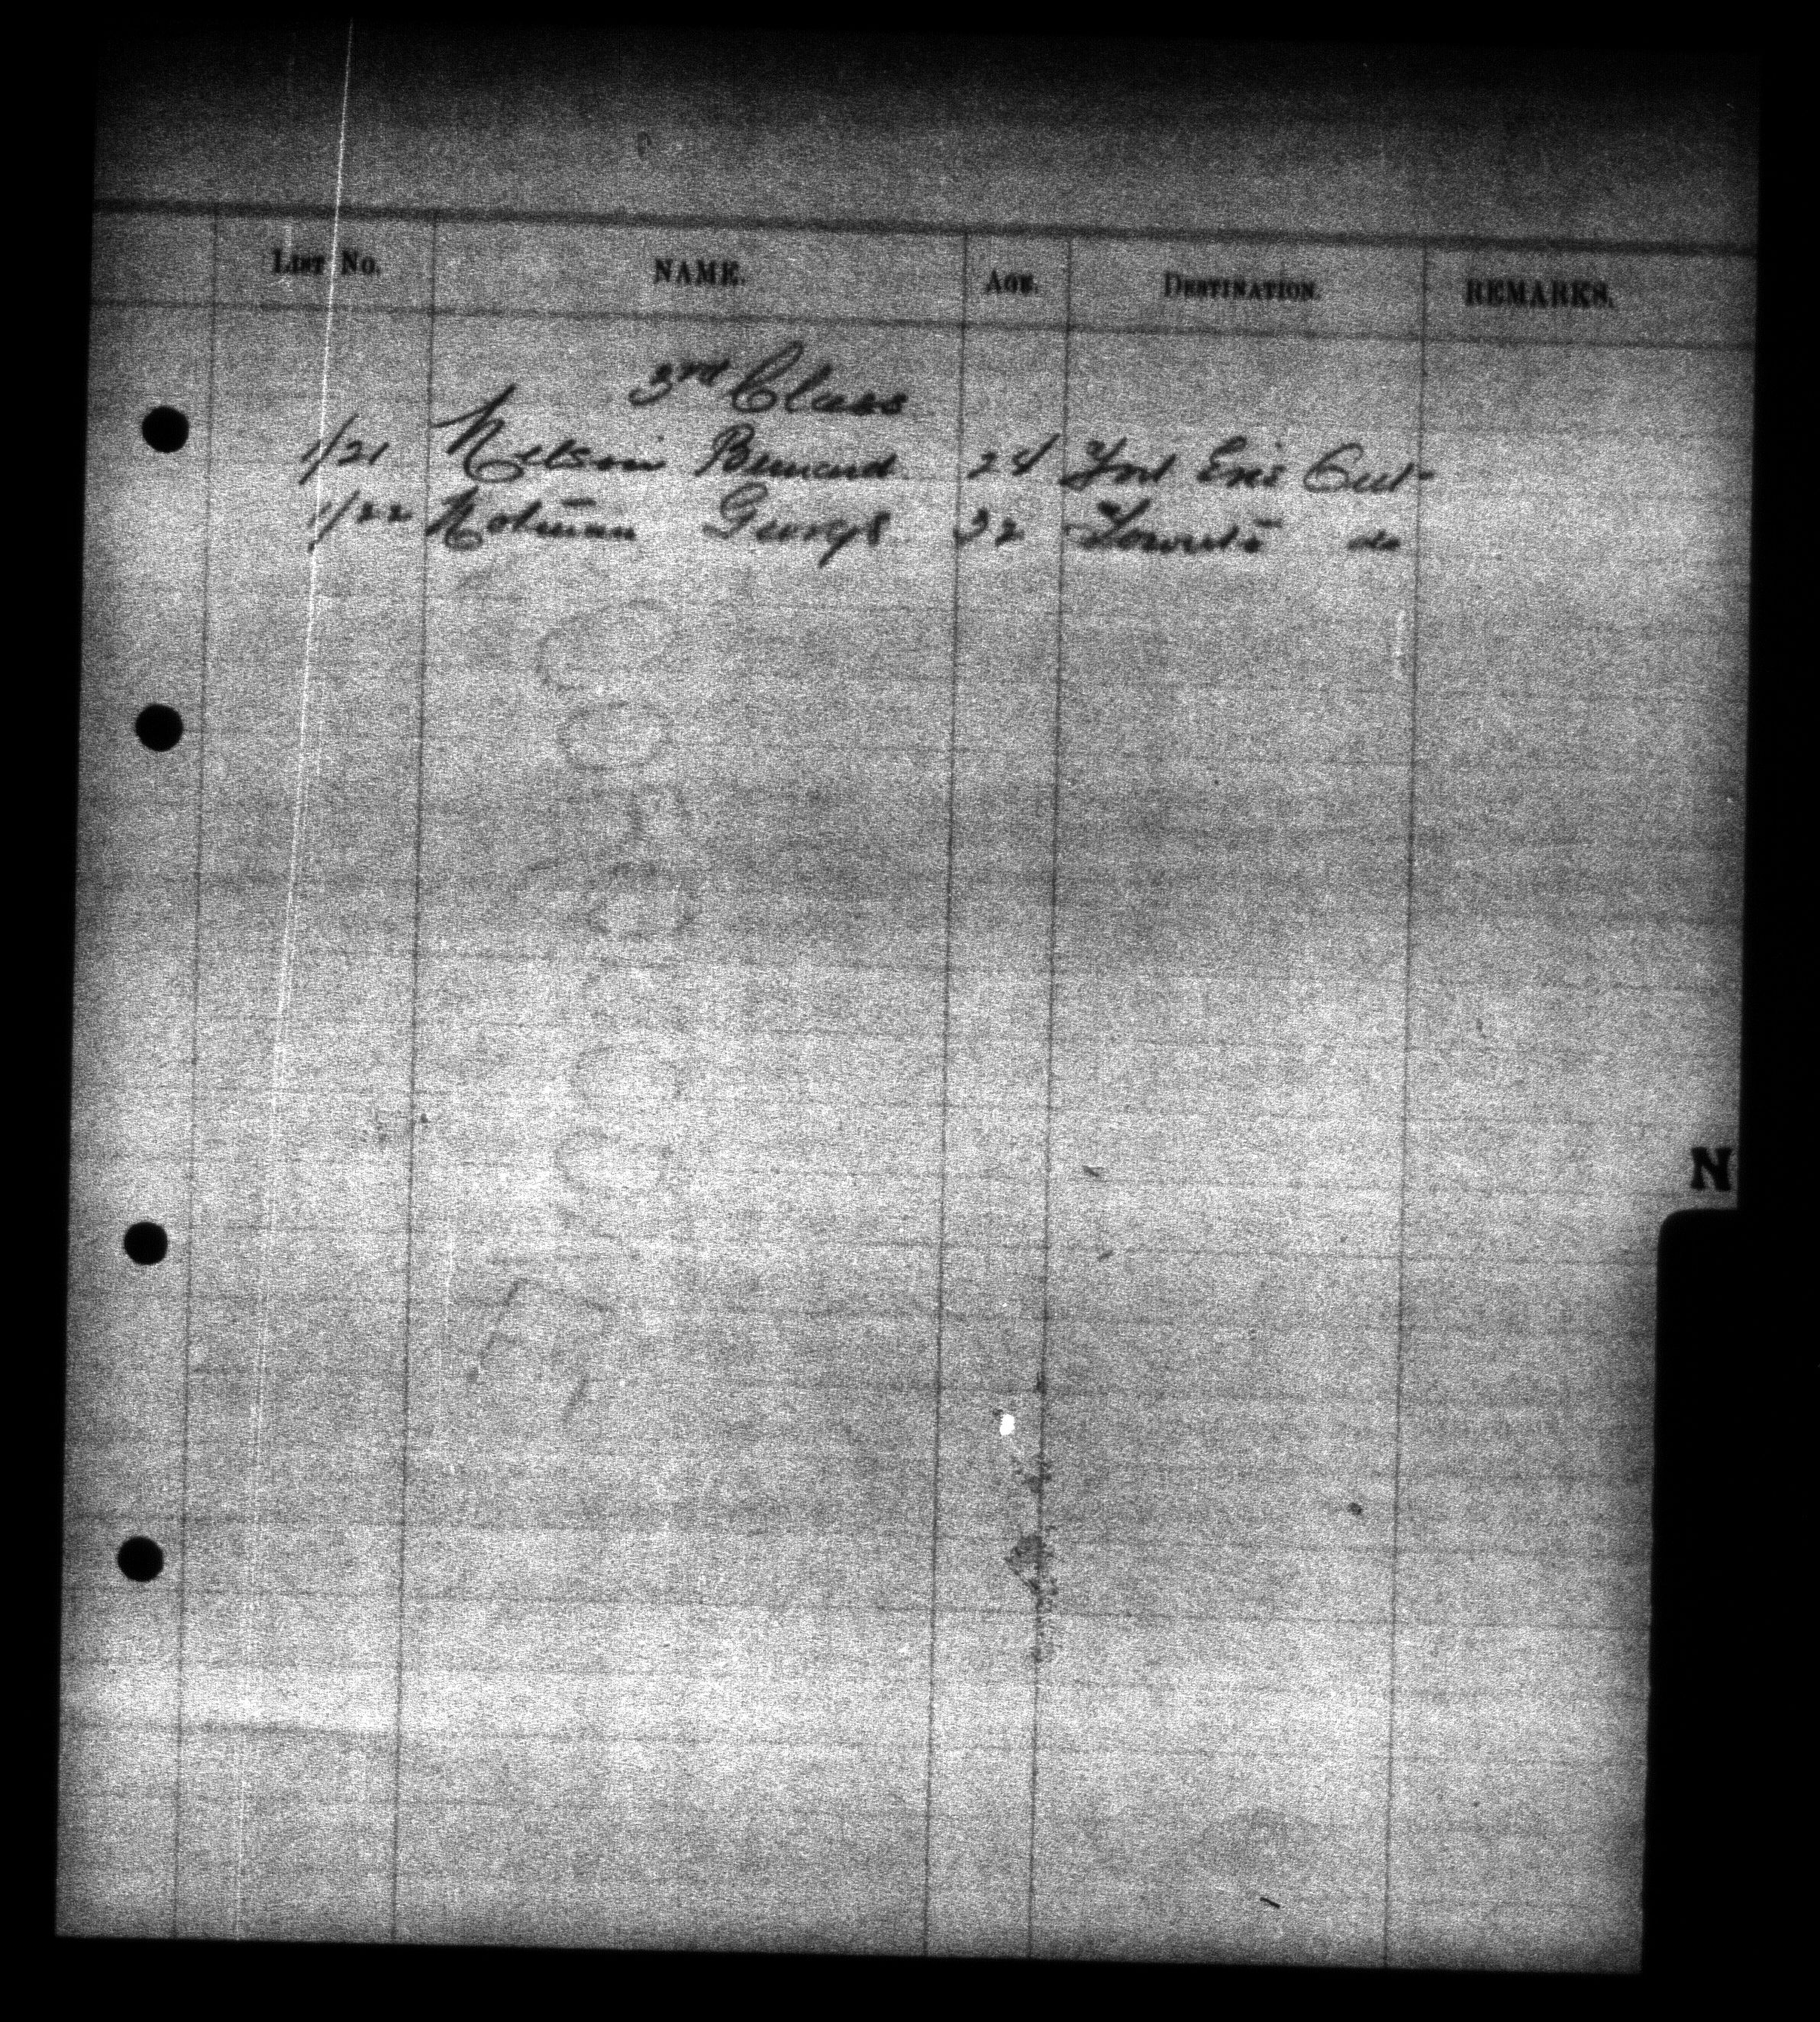 LIST No. NAME. AGE. DESTINATION. REMARKS.
3rd Class
1/21 Nelson Bernard 24 Fort Erie Ont
1/22 Notman George 32 Toronto do
N